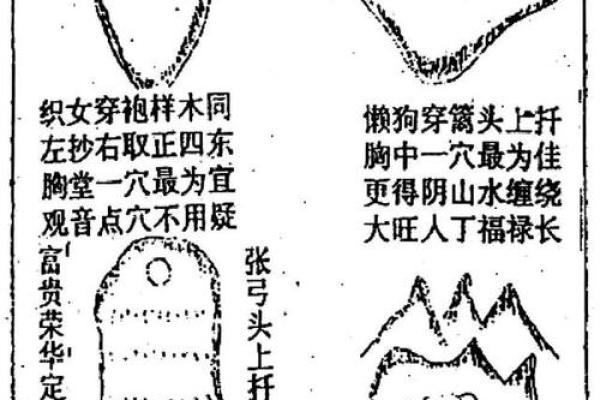 织女穿袍样木同
左抄右取正四东
胸堂一穴最为宜
观音点穴不用疑
懒狗穿篱头上扦
胸中一穴最为佳
更得阴山水缠绕
大旺人丁福禄长
张弓头上扦
富贵荣华定